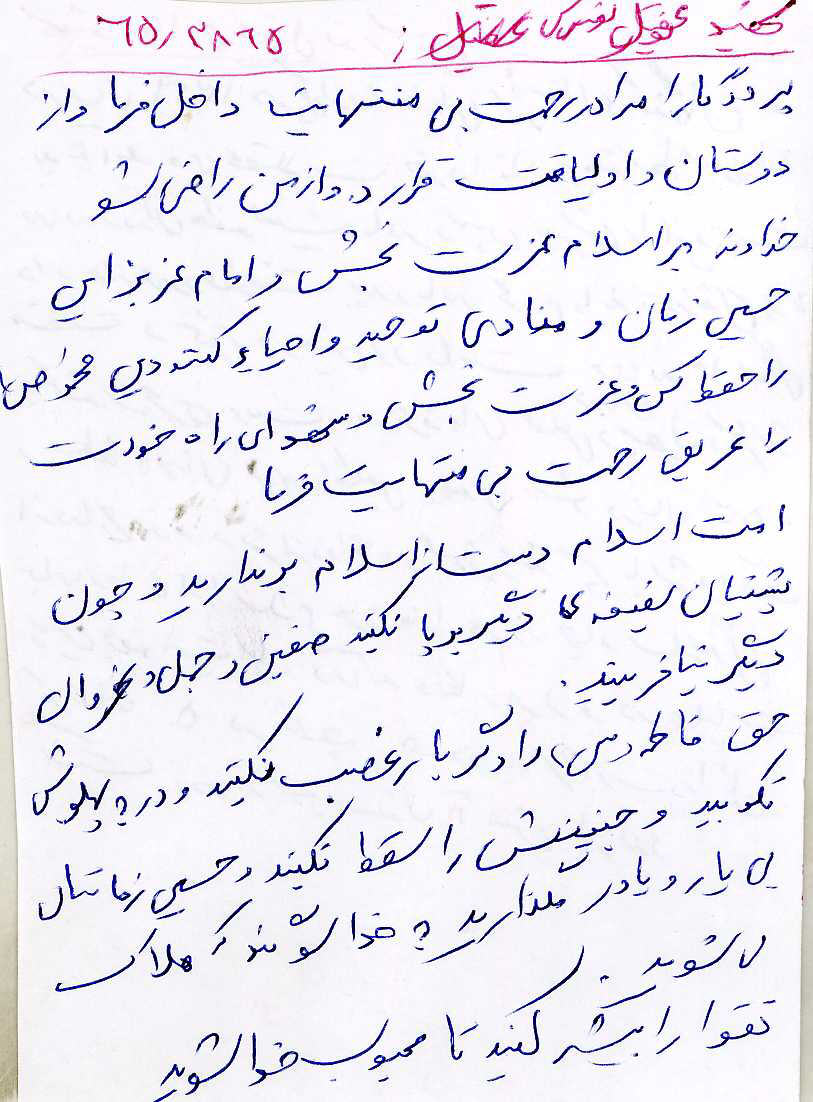 پروردگارا مرا در رحمت بی منتهایت داخل فرما و از
دوستان و اولیائت قرار ده و از من راضی شو
خداوند بر اسلام عزت بخش و امام عزیز این
حسین زمان و منادی توحید و احیاء کننده دین محمد (ص)
را حفظ کن و عزت بخش و شهدای راه خودت
را غریق رحمت بی منتهایت فرما
امت اسلام دست از اسلام برندارید و چون
پیشینیان سقیفه ای دیگر بر پا نکنید صفین و جمل و نهروان
دیگر نیافرینید.
حق فاطمه (س) را دگر بار غصب نکنید و در به پهلویش
نکوبید و جنینش را سقط نکنید و حسین زمانتان
بی یار و یاور مگذارید به خدا سوگند که هلاک
می شوید.
تقوا را پیشه کنید تا محبوب خدا شوید